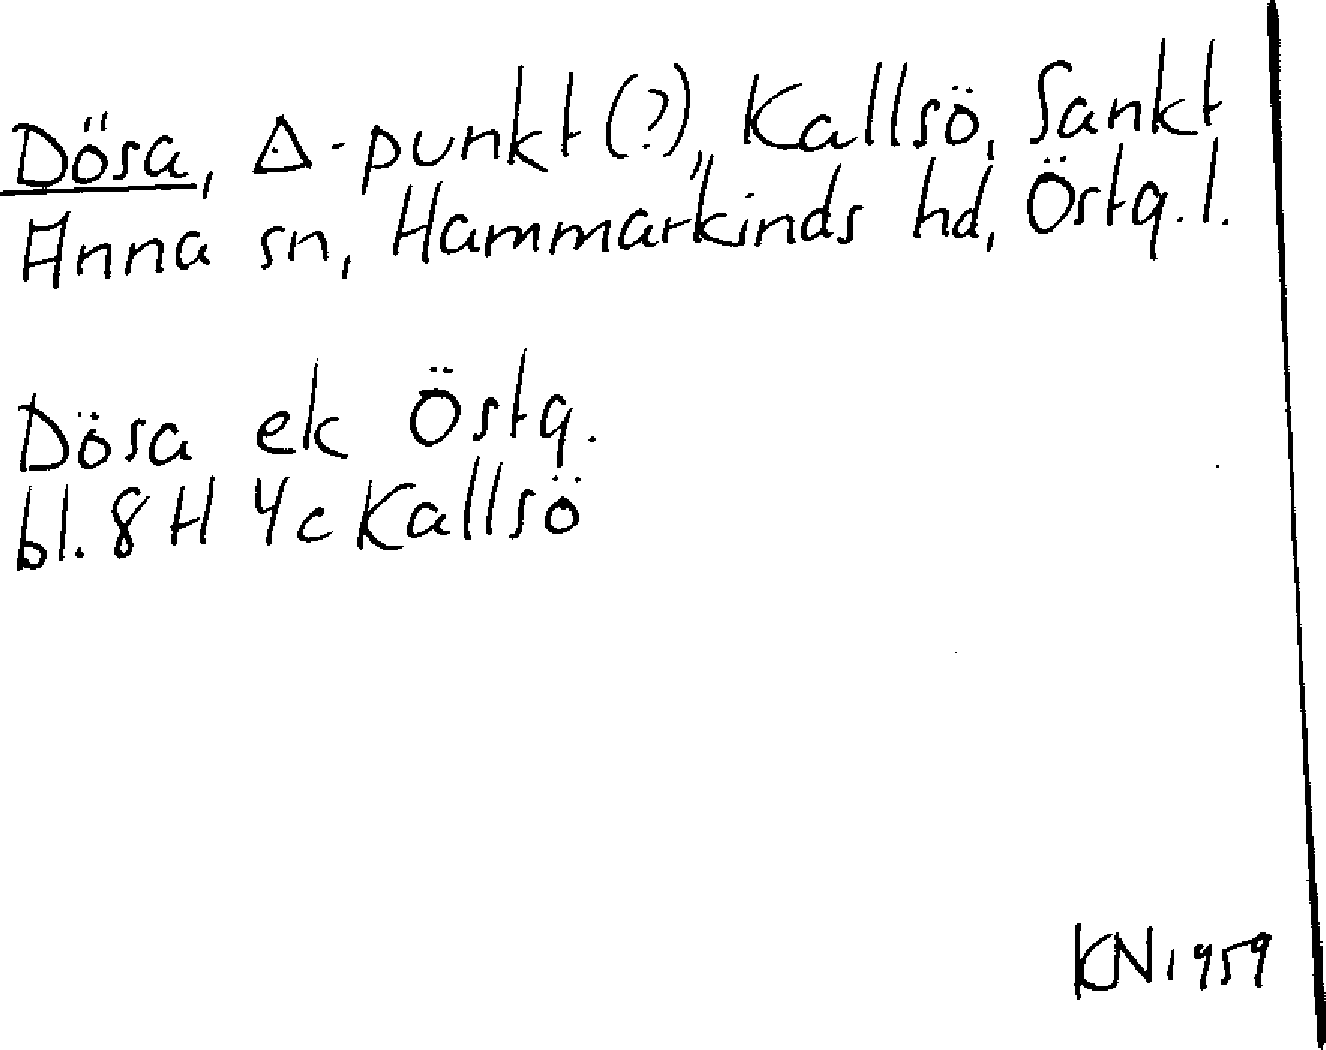 Dösa, △-punkt (?), Kallsö, Sankt
Anna sn, Hammarkinds hd, Östg. l.
Dösa ek Östg.
bl. 8H 4c Kallsö
KN 1959